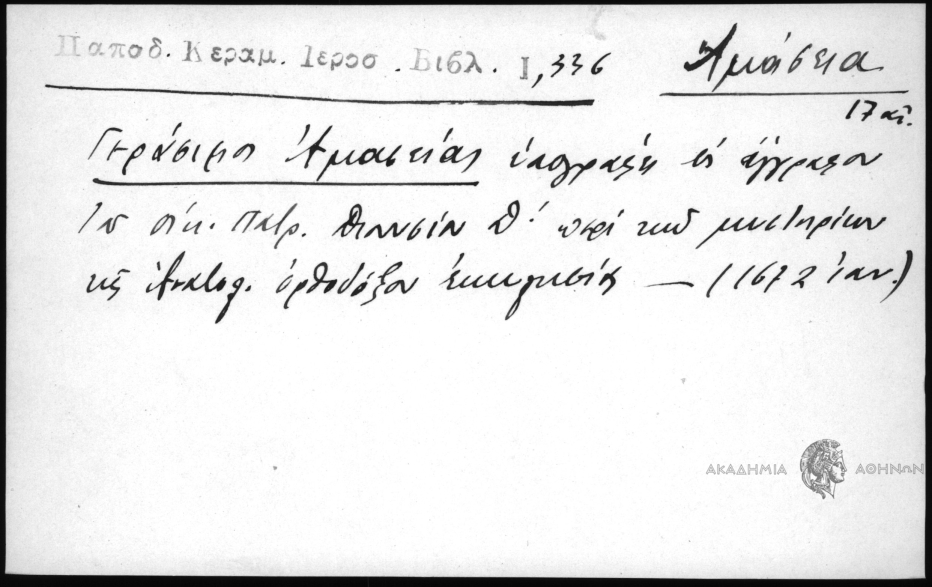 Παπαδ. Κεραμ. Ιεροσ. Βιβλ. I, 336
Ἀμάσεια
17 αἰ.
Γεράσιμος Ἀμασείας ὑπογράφει εἰς ἔγγραφον
τοῦ οἰκ. Πατρ. Διονυσίου Δ' περὶ τῶν μυστηρίων
τῆς Ἀνατολ. ὀρθοδόξου ἐκκλησίας — (1672 ἰαν.)
ΑΚΑΔΗΜΙΑ ΑΘΗΝΩΝ